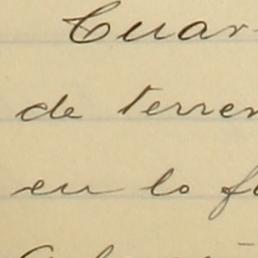 Cuar
de terren
en lo f